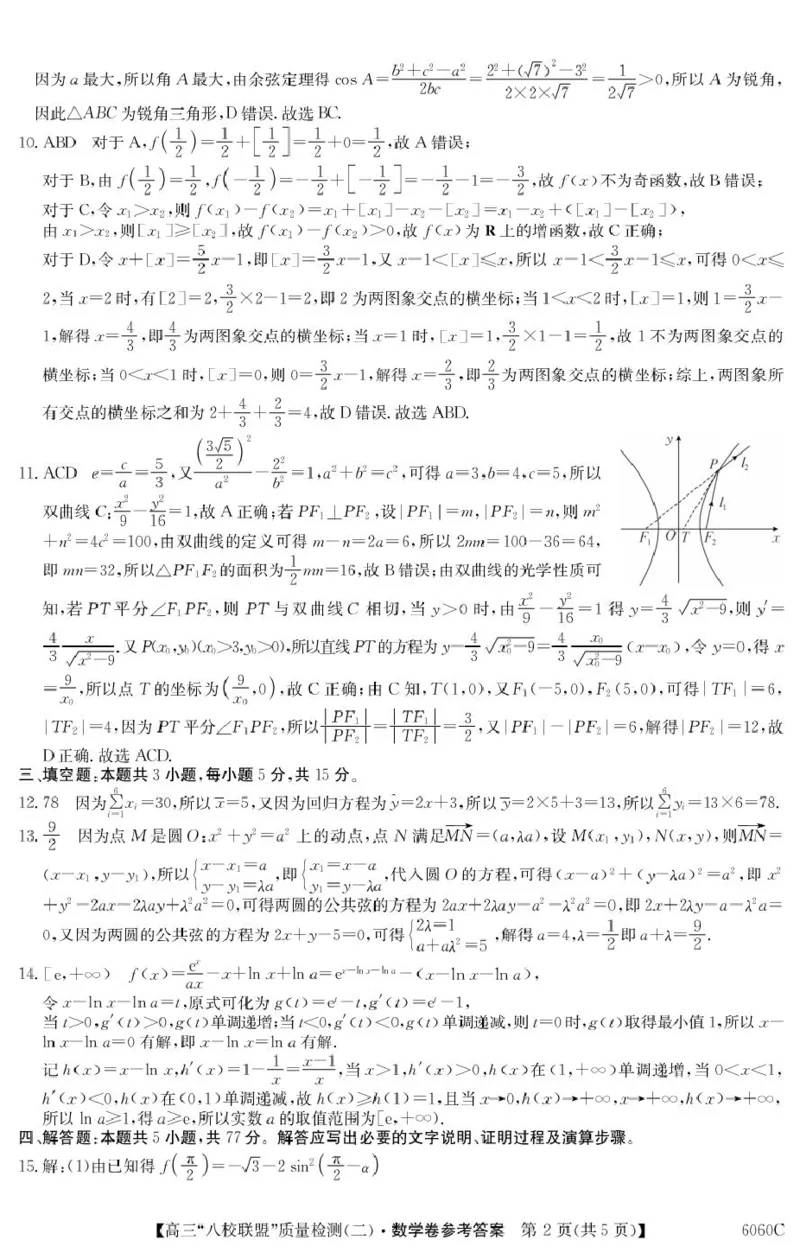 因为a最大,所以角A最大,由余弦定理得 cos A=\frac{b²+c²-a²}{2bc}=\frac{2²+(√7)²-3²}{2×2×√7}=\frac{1}{2√7}>0,所以A为锐角,
因此△ABC为锐角三角形,D错误.故选BC.
10. ABD 对于A,f(\frac{1}{2})=\frac{1}{2}+[\frac{1}{2}]=\frac{1}{2}+0=\frac{1}{2},故A错误;
对于B,由f(\frac{1}{2})=\frac{1}{2},f(-\frac{1}{2})=-\frac{1}{2}+[-\frac{1}{2}]=-\frac{1}{2}-1=-\frac{3}{2},故f(x)不为奇函数,故B错误;
对于C,令x₁>x₂,则f(x₁)-f(x₂)=x₁+[x₁]-x₂-[x₂]=x₁-x₂+([x₁]-[x₂]),
由x₁>x₂,则[x₁]≥[x₂],故f(x₁)-f(x₂)>0,故f(x)为R上的增函数,故C正确;
对于D,令x+[x]=\frac{5}{2}x-1,即[x]=\frac{3}{2}x-1,又x-1<[x]≤x,所以x-1<\frac{3}{2}x-1≤x,可得0<x≤
2,当x=2时,有[2]=2,\frac{3}{2}×2-1=2,即2为两图象交点的横坐标;当1<x<2时,[x]=1,则1=\frac{3}{2}x-
1,解得x=\frac{4}{3},即\frac{4}{3}为两图象交点的横坐标;当x=1时,[x]=1,\frac{3}{2}×1-1=\frac{1}{2},故1不为两图象交点的
横坐标;当0<x<1时,[x]=0,则0=\frac{3}{2}x-1,解得x=\frac{2}{3},即\frac{2}{3}为两图象交点的横坐标;综上,两图象所
有交点的横坐标之和为2+\frac{4}{3}+\frac{2}{3}=4,故D错误.故选ABD.
11. ACD e=\frac{c}{a}=\frac{5}{3},又\frac{(\frac{3√5}{2})²}{a²}-\frac{2²}{b²}=1,a²+b²=c²,可得a=3,b=4,c=5,所以
双曲线C:\frac{x²}{9}-\frac{y²}{16}=1,故A正确;若PF₁⊥PF₂,设|PF₁|=m,|PF₂|=n,则m²
+n²=4c²=100,由双曲线的定义可得m-n=2a=6,所以2mn=100-36=64,
即mn=32,所以△PF₁F₂的面积为\frac{1}{2}mn=16,故B错误;由双曲线的光学性质可
y
P
l₂
l₁
F₁
O
T
F₂
x
知,若PT平分∠F₁PF₂,则PT与双曲线C相切,当y>0时,由\frac{x²}{9}-\frac{y²}{16}=1得y=\frac{4}{3}√(x²-9),则y′=
\frac{4}{3}\frac{x}{√(x²-9)}.又P(x₀,y₀)(x₀>3,y₀>0),所以直线PT的方程为y-\frac{4}{3}√(x₀²-9)=\frac{4}{3}\frac{x₀}{√(x₀²-9)}(x-x₀),令y=0,得x
=\frac{9}{x₀},所以点T的坐标为(\frac{9}{x₀},0),故C正确;由C知,T(1,0),又F₁(-5,0),F₂(5,0),可得|TF₁|=6,
|TF₂|=4,因为PT平分∠F₁PF₂,所以\frac{|PF₁|}{|PF₂|}=\frac{|TF₁|}{|TF₂|}=\frac{3}{2},又|PF₁|-|PF₂|=6,解得|PF₂|=12,故
D正确.故选ACD.
三、填空题:本题共3小题,每小题5分,共15分。
12. 78 因为\sum_{i=1}^{6}xᵢ=30,所以x̄=5,又因为回归方程为ŷ=2x+3,所以ȳ=2×5+3=13,所以\sum_{i=1}^{6}yᵢ=13×6=78.
13. \frac{9}{2} 因为点M是圆O:x²+y²=a²上的动点,点N满足\overrightarrow{MN}=(a,λa),设M(x₁,y₁),N(x,y),则\overrightarrow{MN}=
(x-x₁,y-y₁),所以{x-x₁=a y-y₁=λa,即{x₁=x-a y₁=y-λa,代入圆O的方程,可得(x-a)²+(y-λa)²=a²,即x²
+y²-2ax-2λay+λ²a²=0,可得两圆的公共弦的方程为2ax+2λay-a²-λ²a²=0,即2x+2λy-a-λ²a=
0,又因为两圆的公共弦的方程为2x+y-5=0,可得{2λ=1 a+aλ²=5,解得a=4,λ=\frac{1}{2}即a+λ=\frac{9}{2}.
14. [e,+∞) f(x)=\frac{eˣ}{ax}-x+ln x+ln a=e^{x-ln x-ln a}-(x-ln x-ln a),
令x-ln x-ln a=t,原式可化为g(t)=eᵗ-t,g′(t)=eᵗ-1,
当t>0,g′(t)>0,g(t)单调递增;当t<0,g′(t)<0,g(t)单调递减,则t=0时,g(t)取得最小值1,所以x-
ln x-ln a=0有解,即x-ln x=ln a有解.
记h(x)=x-ln x,h′(x)=1-\frac{1}{x}=\frac{x-1}{x},当x>1,h′(x)>0,h(x)在(1,+∞)单调递增,当0<x<1,
h′(x)<0,h(x)在(0,1)单调递减,故h(x)≥h(1)=1,且当x→0,h(x)→+∞,x→+∞,h(x)→+∞,
所以ln a≥1,得a≥e,所以实数a的取值范围为[e,+∞).
四、解答题:本题共5小题,共77分。解答应写出必要的文字说明、证明过程及演算步骤。
15. 解:(1)由已知得f(\frac{π}{2})=-√3-2 sin²(\frac{π}{2}-α)
【高三“八校联盟”质量检测(二)·数学卷参考答案 第2页(共5页)】 6060C